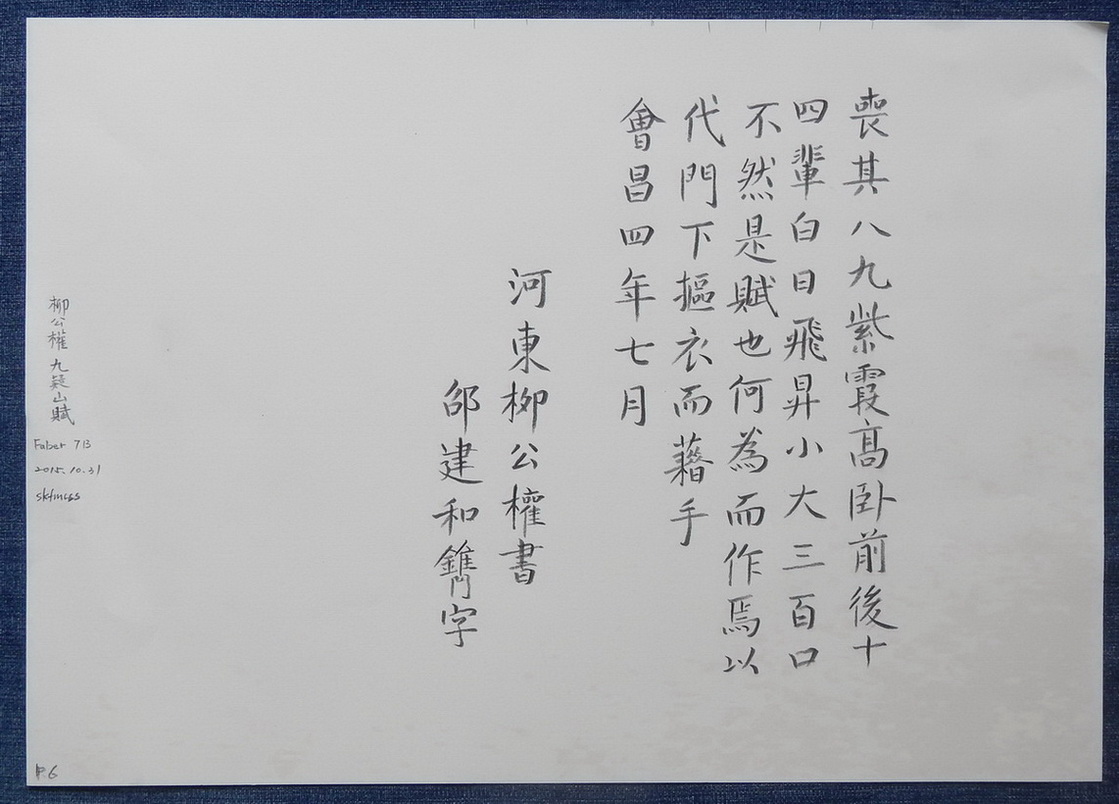 喪其八九紫霞高卧前後十
四輩白日飛昇小大三百口
不然是賦也何為而作焉以
代門下摳衣而藉手
會昌四年七月
河東柳公權書
邵建和鐫字
柳公權 九疑山賦
Faber 713
2015.10.31
skfmcss
P.6